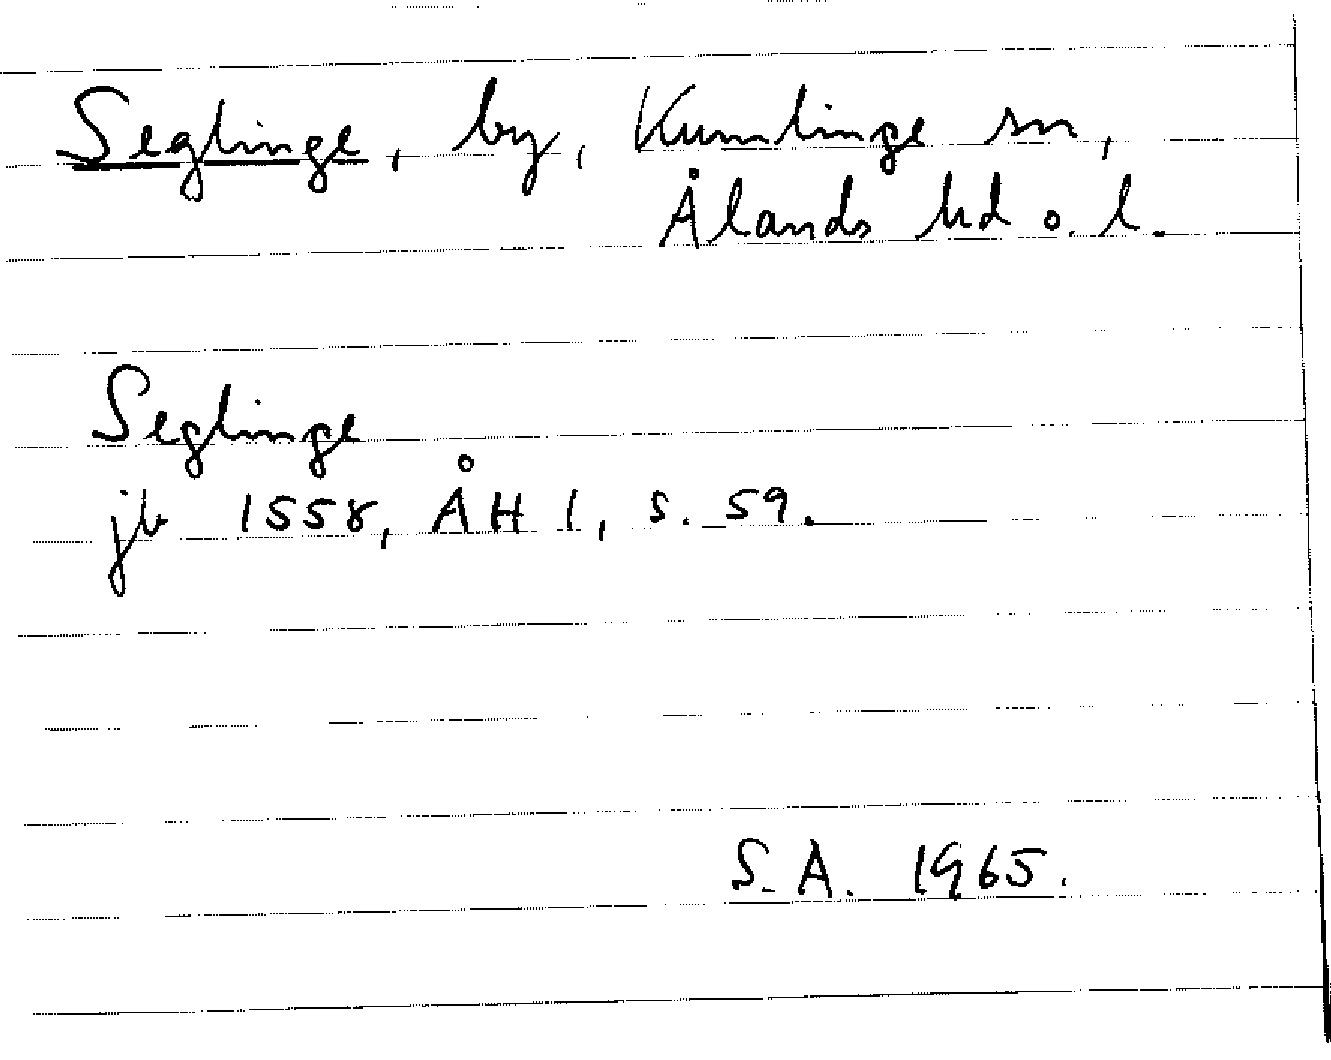 Seglinge, by, Kumlinge sn,
Ålands hd o. l.
Seglinge
jb 1558, ÅH 1, s. 59.
S.A. 1965.